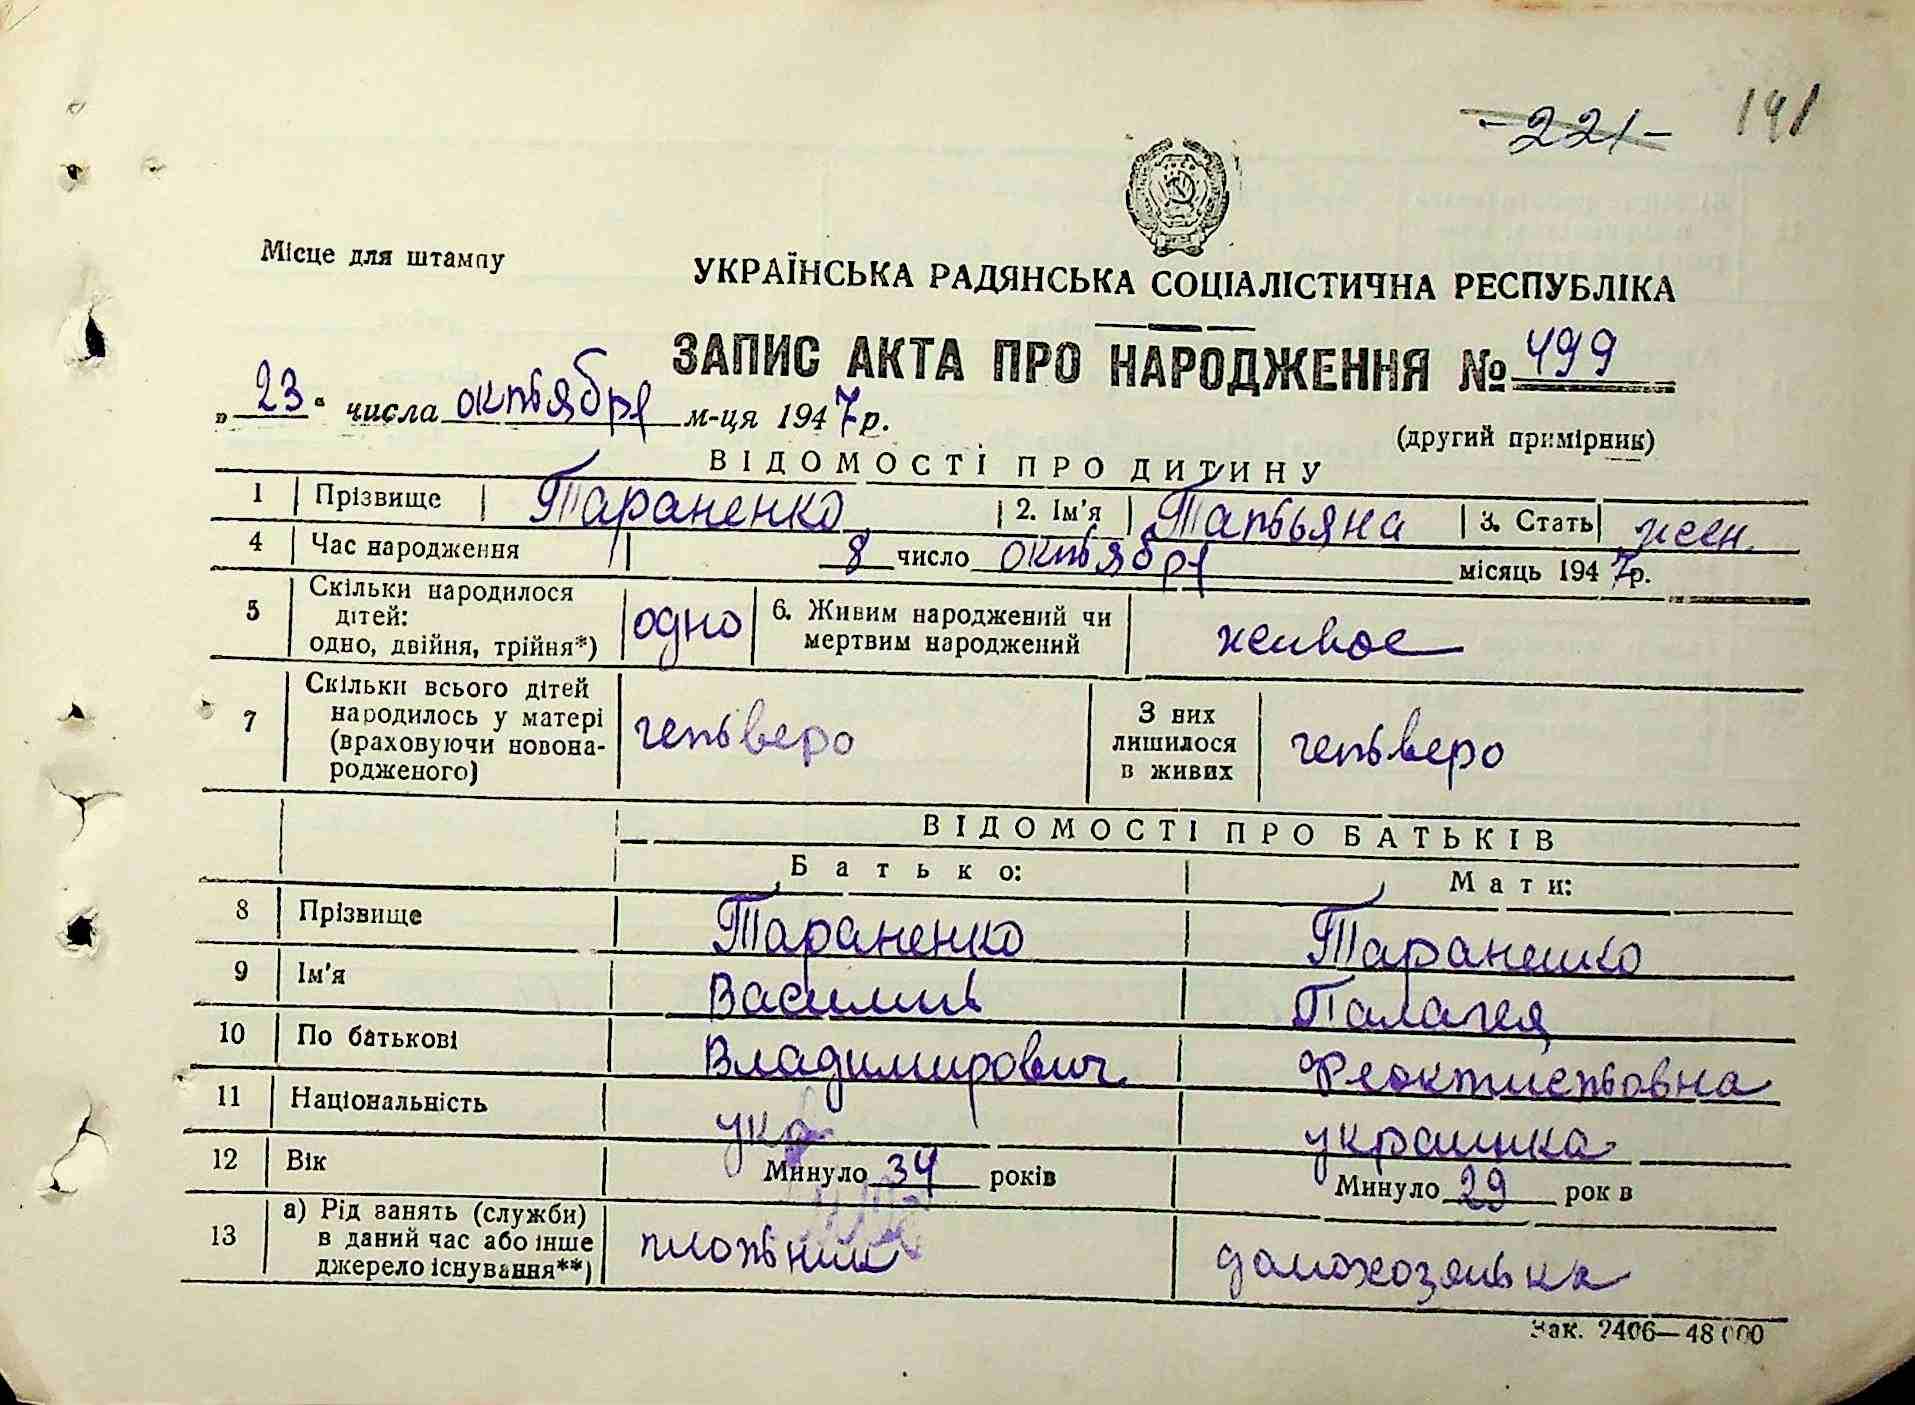 -221- 141
Місце для штампу
УКРАЇНСЬКА РАДЯНСЬКА СОЦІАЛІСТИЧНА РЕСПУБЛІКА
ЗАПИС АКТА ПРО НАРОДЖЕННЯ № 499
„ 23 " числа октября м-ця 1947 р.
(другий примірник)
ВІДОМОСТІ ПРО ДИТИНУ
1 Прізвище Тараненко 2. Ім'я Татьяна 3. Стать жен.
4 Час народження 8 число октября місяць 1947 р.
5 Скільки народилося
дітей:
одно, двійня, трійня*) одно 6. Живим народжений чи
мертвим народжений живое
7 Скільки всього дітей
народилось у матері
(враховуючи новона-
родженого) четверо З них
лишилося
в живих четверо
ВІДОМОСТІ ПРО БАТЬКІВ
Батько: Мати:
8 Прізвище Тараненко Тараненко
9 Ім'я Василий Палагея
10 По батькові Владимирович Феоктистовна
11 Національність укр украинка
12 Вік Минуло 34 років Минуло 29 рок в
13 а) Рід занять (служби)
в даний час або інше
джерело існування**) плотник домохозяйка
Зак. 2406—48 000